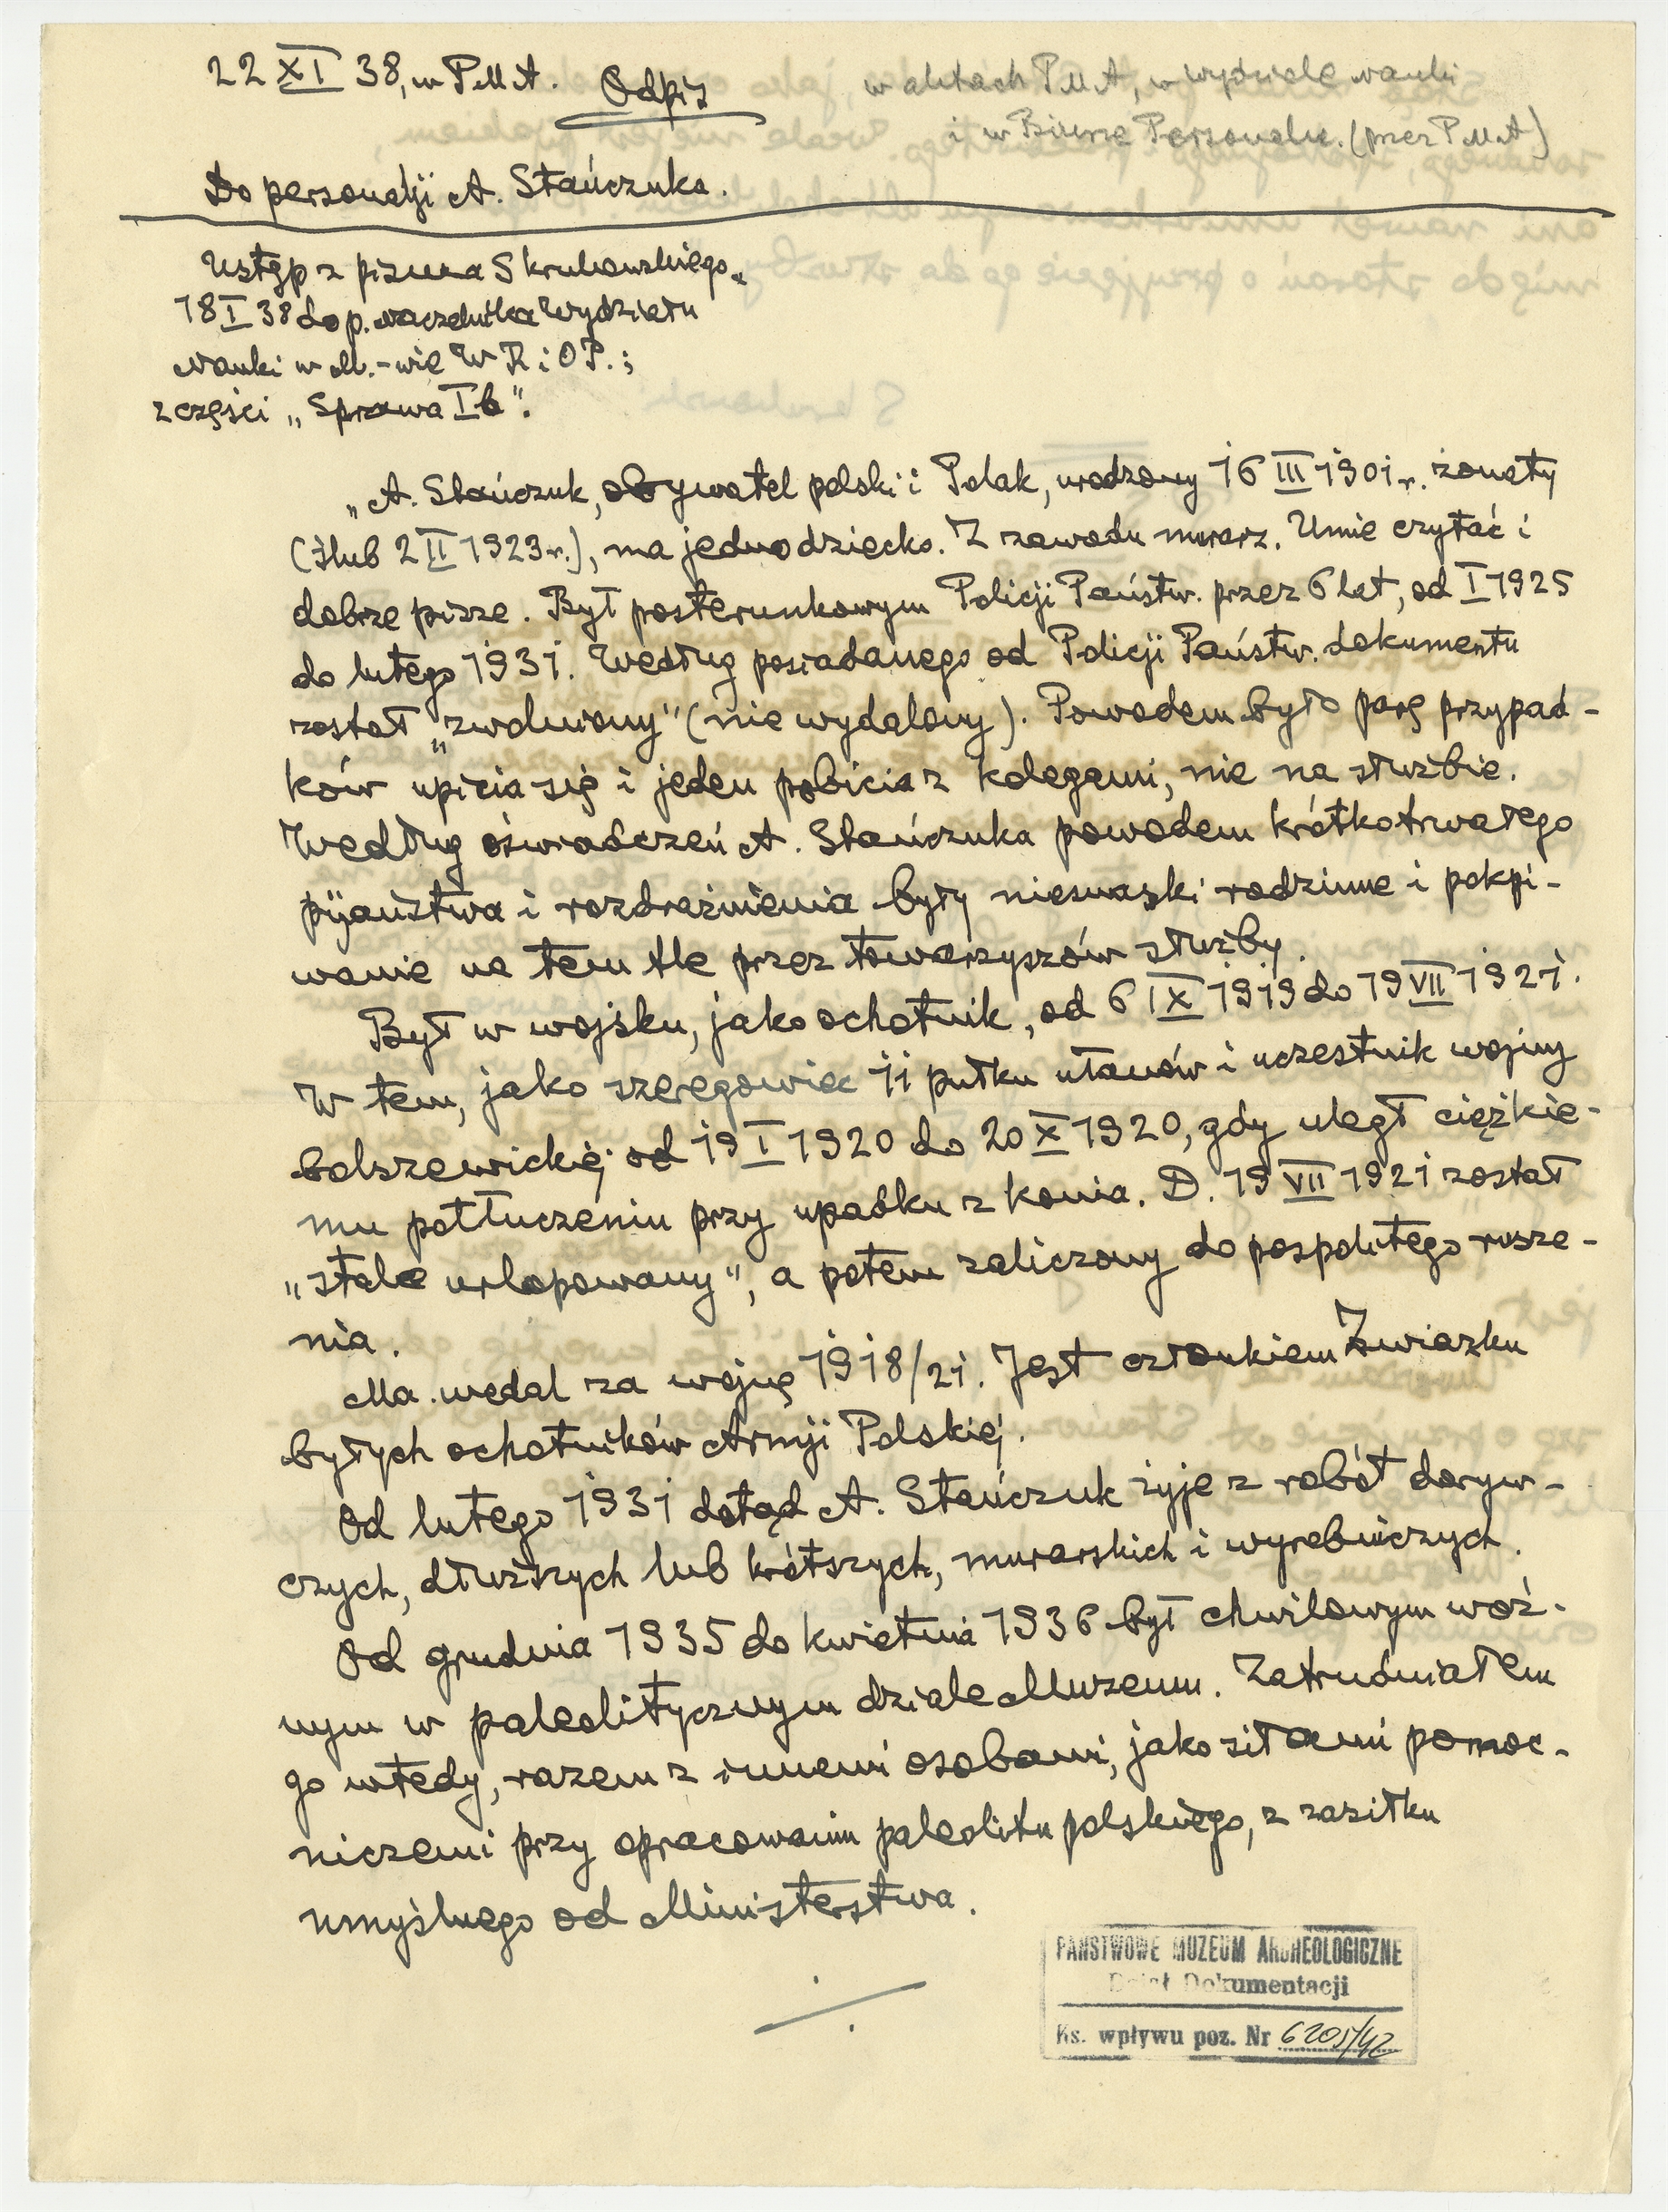 22 XI 38, w P.M.A.
Odpis
w aktach P.M.A, w wydziale nauki
i w Biurze Personaln. (przez P.M.A)
Do personalji A. Stańczuka.
Ustęp z pisma S Krukowskiego,
18 I 38 do p. naczelnika Wydziału
Nauki w M.-wie W R i O P.;
z części „Sprawa I b".
„A. Stańczuk, obywatel polski i Polak, urodzony 16 III 1901 r. żonaty
(ślub 2 II 1923 r.), ma jedno dziecko. Z zawodu murarz. Umie czytać i
dobrze pisze. Był posterunkowym Policji Państw. przez 6 lat, od I 1925
do lutego 1931. Według posiadanego od Policji Państw. dokumentu
został „zwolniony" (nie wydalony). Powodem było parę przypad-
ków upicia się i jeden pobicia z kolegami, nie na służbie.
Według oświadczeń A. Stańczuka powodem krótkotrwałego
pijaństwa i rozdrażnienia były niesnaski rodzinne i pokpi-
wanie na tem tle przez towarzyszów służby.
Był w wojsku, jako ochotnik, od 6 IX 1919 do 19 VII 1921.
W tem, jako szeregowiec 11 pułku ułanów i uczestnik wojny
bolszewickiej od 19 I 1920 do 20 X 1920, gdy uległ ciężkie-
mu potłuczeniu przy upadku z konia. D. 19 VII 1921 został
„stale urlopowany", a potem zaliczony do pospolitego rusze-
nia.
Ma medal za wojnę 1918/21. Jest członkiem Związku
byłych ochotników Armji Polskiej.
Od lutego 1931 dotąd A. Stańczuk żyje z robót doryw-
czych, dłuższych lub krótszych, murarskich i wyrobniczych.
Od grudnia 1935 do kwietnia 1936 był chwilowym woź-
nym w paleolitycznym dziale Muzeum. Zatrudniałem
go wtedy, razem z innemi osobami, jako siłami pomoc-
niczemi przy opracowaniu paleolitu polskiego, z zasiłku
umyślnego od Ministerstwa.
PAŃSTWOWE MUZEUM ARCHEOLOGICZNE
Dział Dokumentacji
Ks. wpływu poz. Nr 6205/42